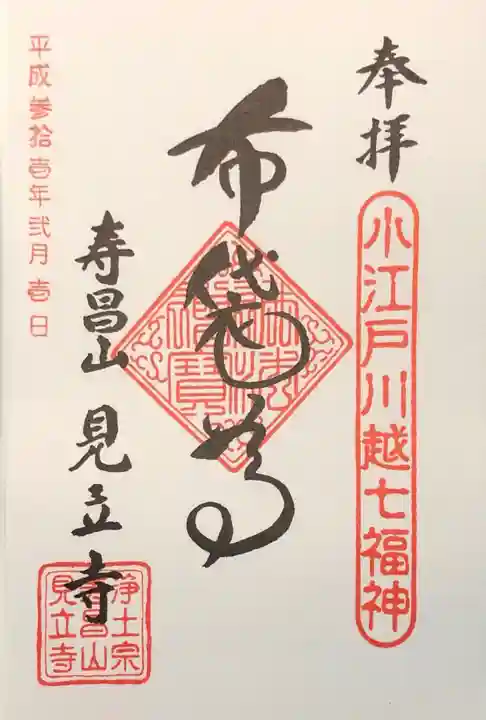 奉拝
小江戸川越七福神
布袋尊
寿昌山 見立寺
浄土宗
寿昌山
見立寺
平成参拾壱年弐月壱日